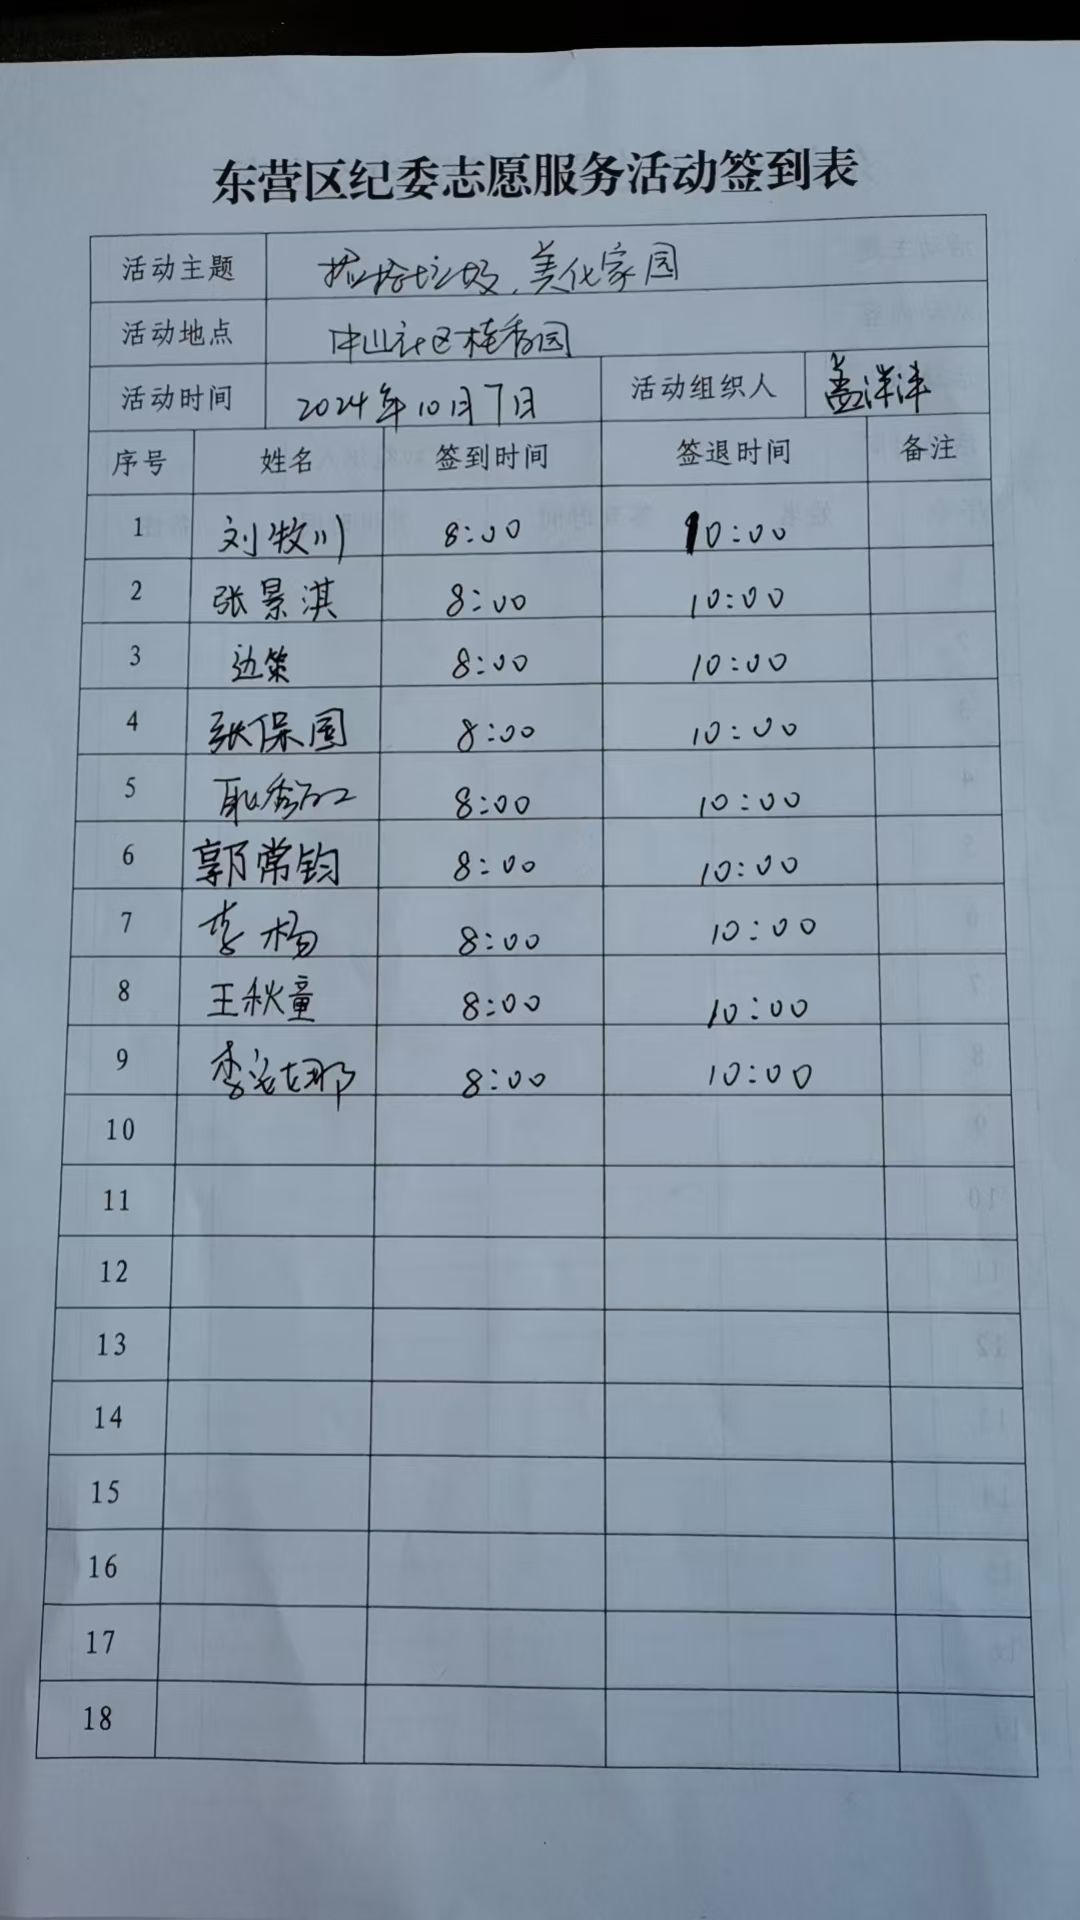 东营区纪委志愿服务活动签到表
活动主题 捡拾垃圾、美化家园
活动地点 中山社区桂香园
活动时间 2024年10月7日 活动组织人 孟洋洋
序号 姓名 签到时间 签退时间 备注
1 刘牧川 8:00 10:00
2 张景淇 8:00 10:00
3 边策 8:00 10:00
4 张保国 8:00 10:00
5 耿秀 8:00 10:00
6 郭常钧 8:00 10:00
7 李杨 8:00 10:00
8 王秋童 8:00 10:00
9 李 娜 8:00 10:00
10
11
12
13
14
15
16
17
18